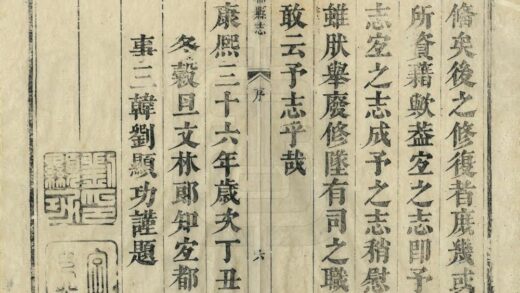 脩矣後之修復者庶幾或
所資藉歟葢宐之志卽予
志宐之志成予之志稍慰
雖肰舉廢修墜有司之職
敢云予志乎哉
縣志
序
六
康熙三十六年歲次丁丑
冬穀旦文林郞知宐都
事三韓劉顯功謹題